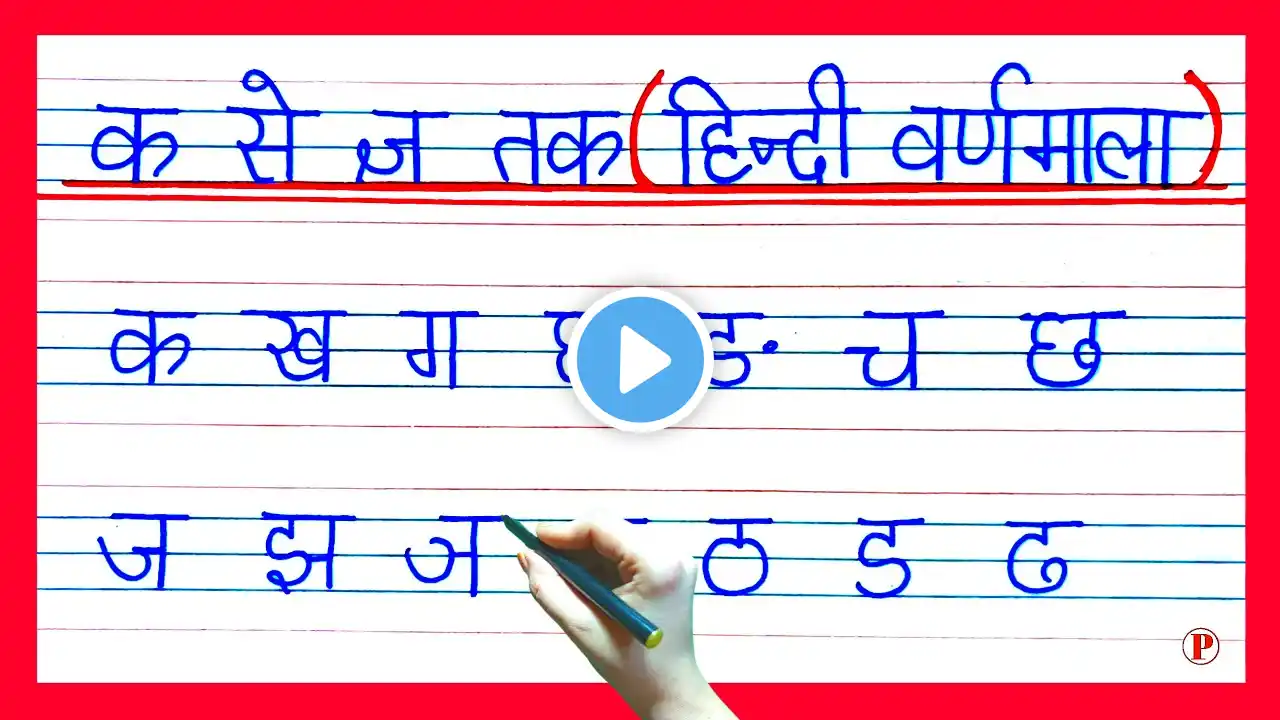 क से ज्ञ तक (हिन्दी वर्णमाला)
क ख ग ङ च छ
ज झ ञ ठ ड ढ
P